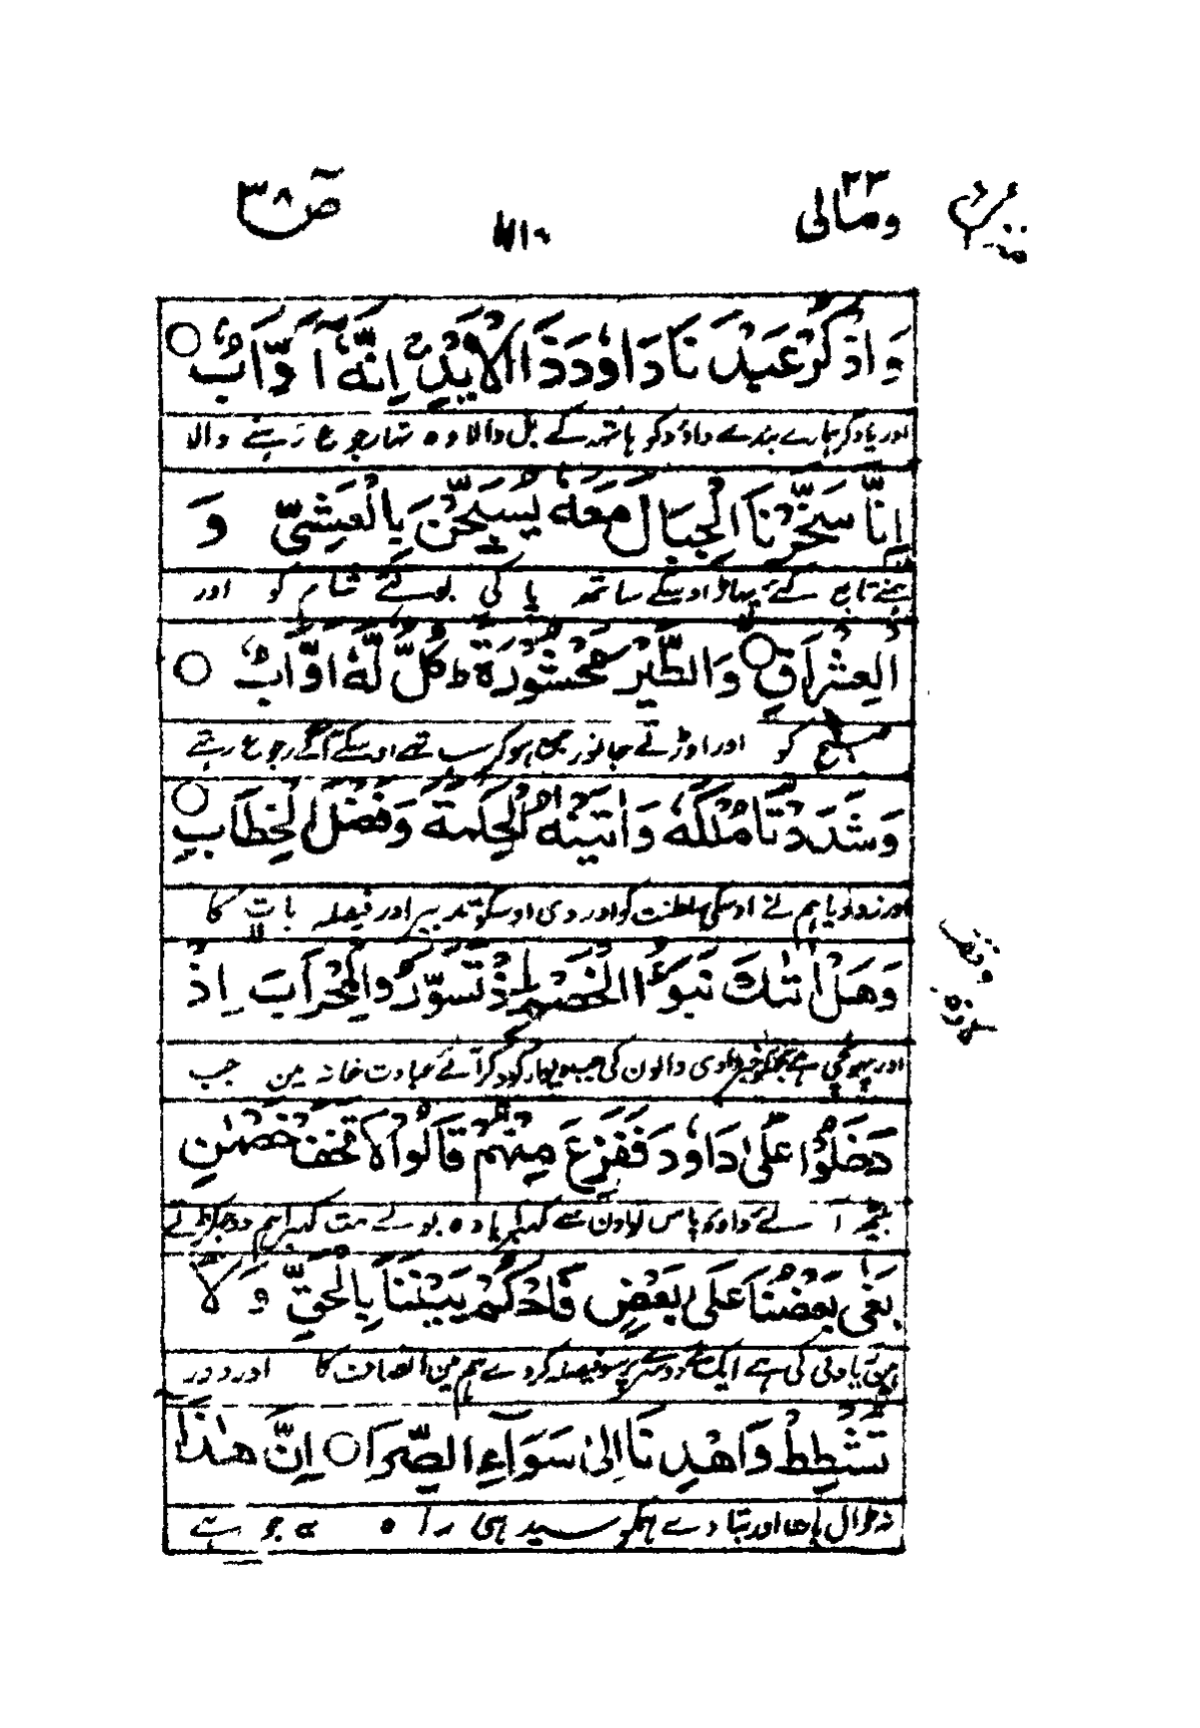 ص ٣٨
ومالی ٢٣
وَاذْكُرْ عَبْدَنَا دَاوٗدَ ذَا الْاَيْدِ ۚ اِنَّهٗۤ اَوَّابٌ ○
اور یاد کر ہمارے بندے داؤد کو ہاتھ کے بل والا وہ تھا رجوع رہنے والا
اِنَّا سَخَّرْنَا الْجِبَالَ مَعَهٗ يُسَبِّحْنَ بِالْعَشِيِّ وَ
ہمنے تابع کئے پہاڑ اوسکے ساتھ پاکی بولتے شام کو اور
الْاِشْرَاقِ ○ وَالطَّيْرَ مَحْشُوْرَةً ط كُلٌّ لَّهٗۤ اَوَّابٌ ○
صبح کو اور اوڑتے جانور جمع ہوکر سب تھے اوسکے آگے رجوع رہتے
وَشَدَدْنَا مُلْكَهٗ وَاٰتَيْنٰهُ الْحِكْمَةَ وَفَصْلَ الْخِطَابِ ○
اور زور دیا ہم نے اوسکی سلطنت کو اور دی اوسکو تدبیر اور فیصلہ بات کا
وَهَلْ اَتٰىكَ نَبَؤُا الْخَصْمِ اِذْ تَسَوَّرُوا الْمِحْرَابَ اِذْ
اور پہونچی ہے تجھکو خبر دعوی والون کی جب دیوار کود کر آئے عبادت خانہ مین جب
دَخَلُوْا عَلٰى دَاوٗدَ فَفَزِعَ مِنْهُمْ قَالُوْا لَا تَخَفْ خَصْمٰنِ
آئے داود پاس تو اون سے گھبرایا وہ بولے مت گھبرا ہم دو جھگڑتے
بَغٰى بَعْضُنَا عَلٰى بَعْضٍ فَاحْكُمْ بَيْنَنَا بِالْحَقِّ وَ لَا
ہین زیادتی کی ہے ایک نے دوسرے پر سو فیصلہ کردے ہم مین انصاف کا اور دور
تُشْطِطْ وَاهْدِنَاۤ اِلٰى سَوَآءِ الصِّرَاطِ ○ اِنَّ هٰذَاۤ
نہ ڈال بات اور بتا دے ہمکو سیدھی راہ یہ جو ہے